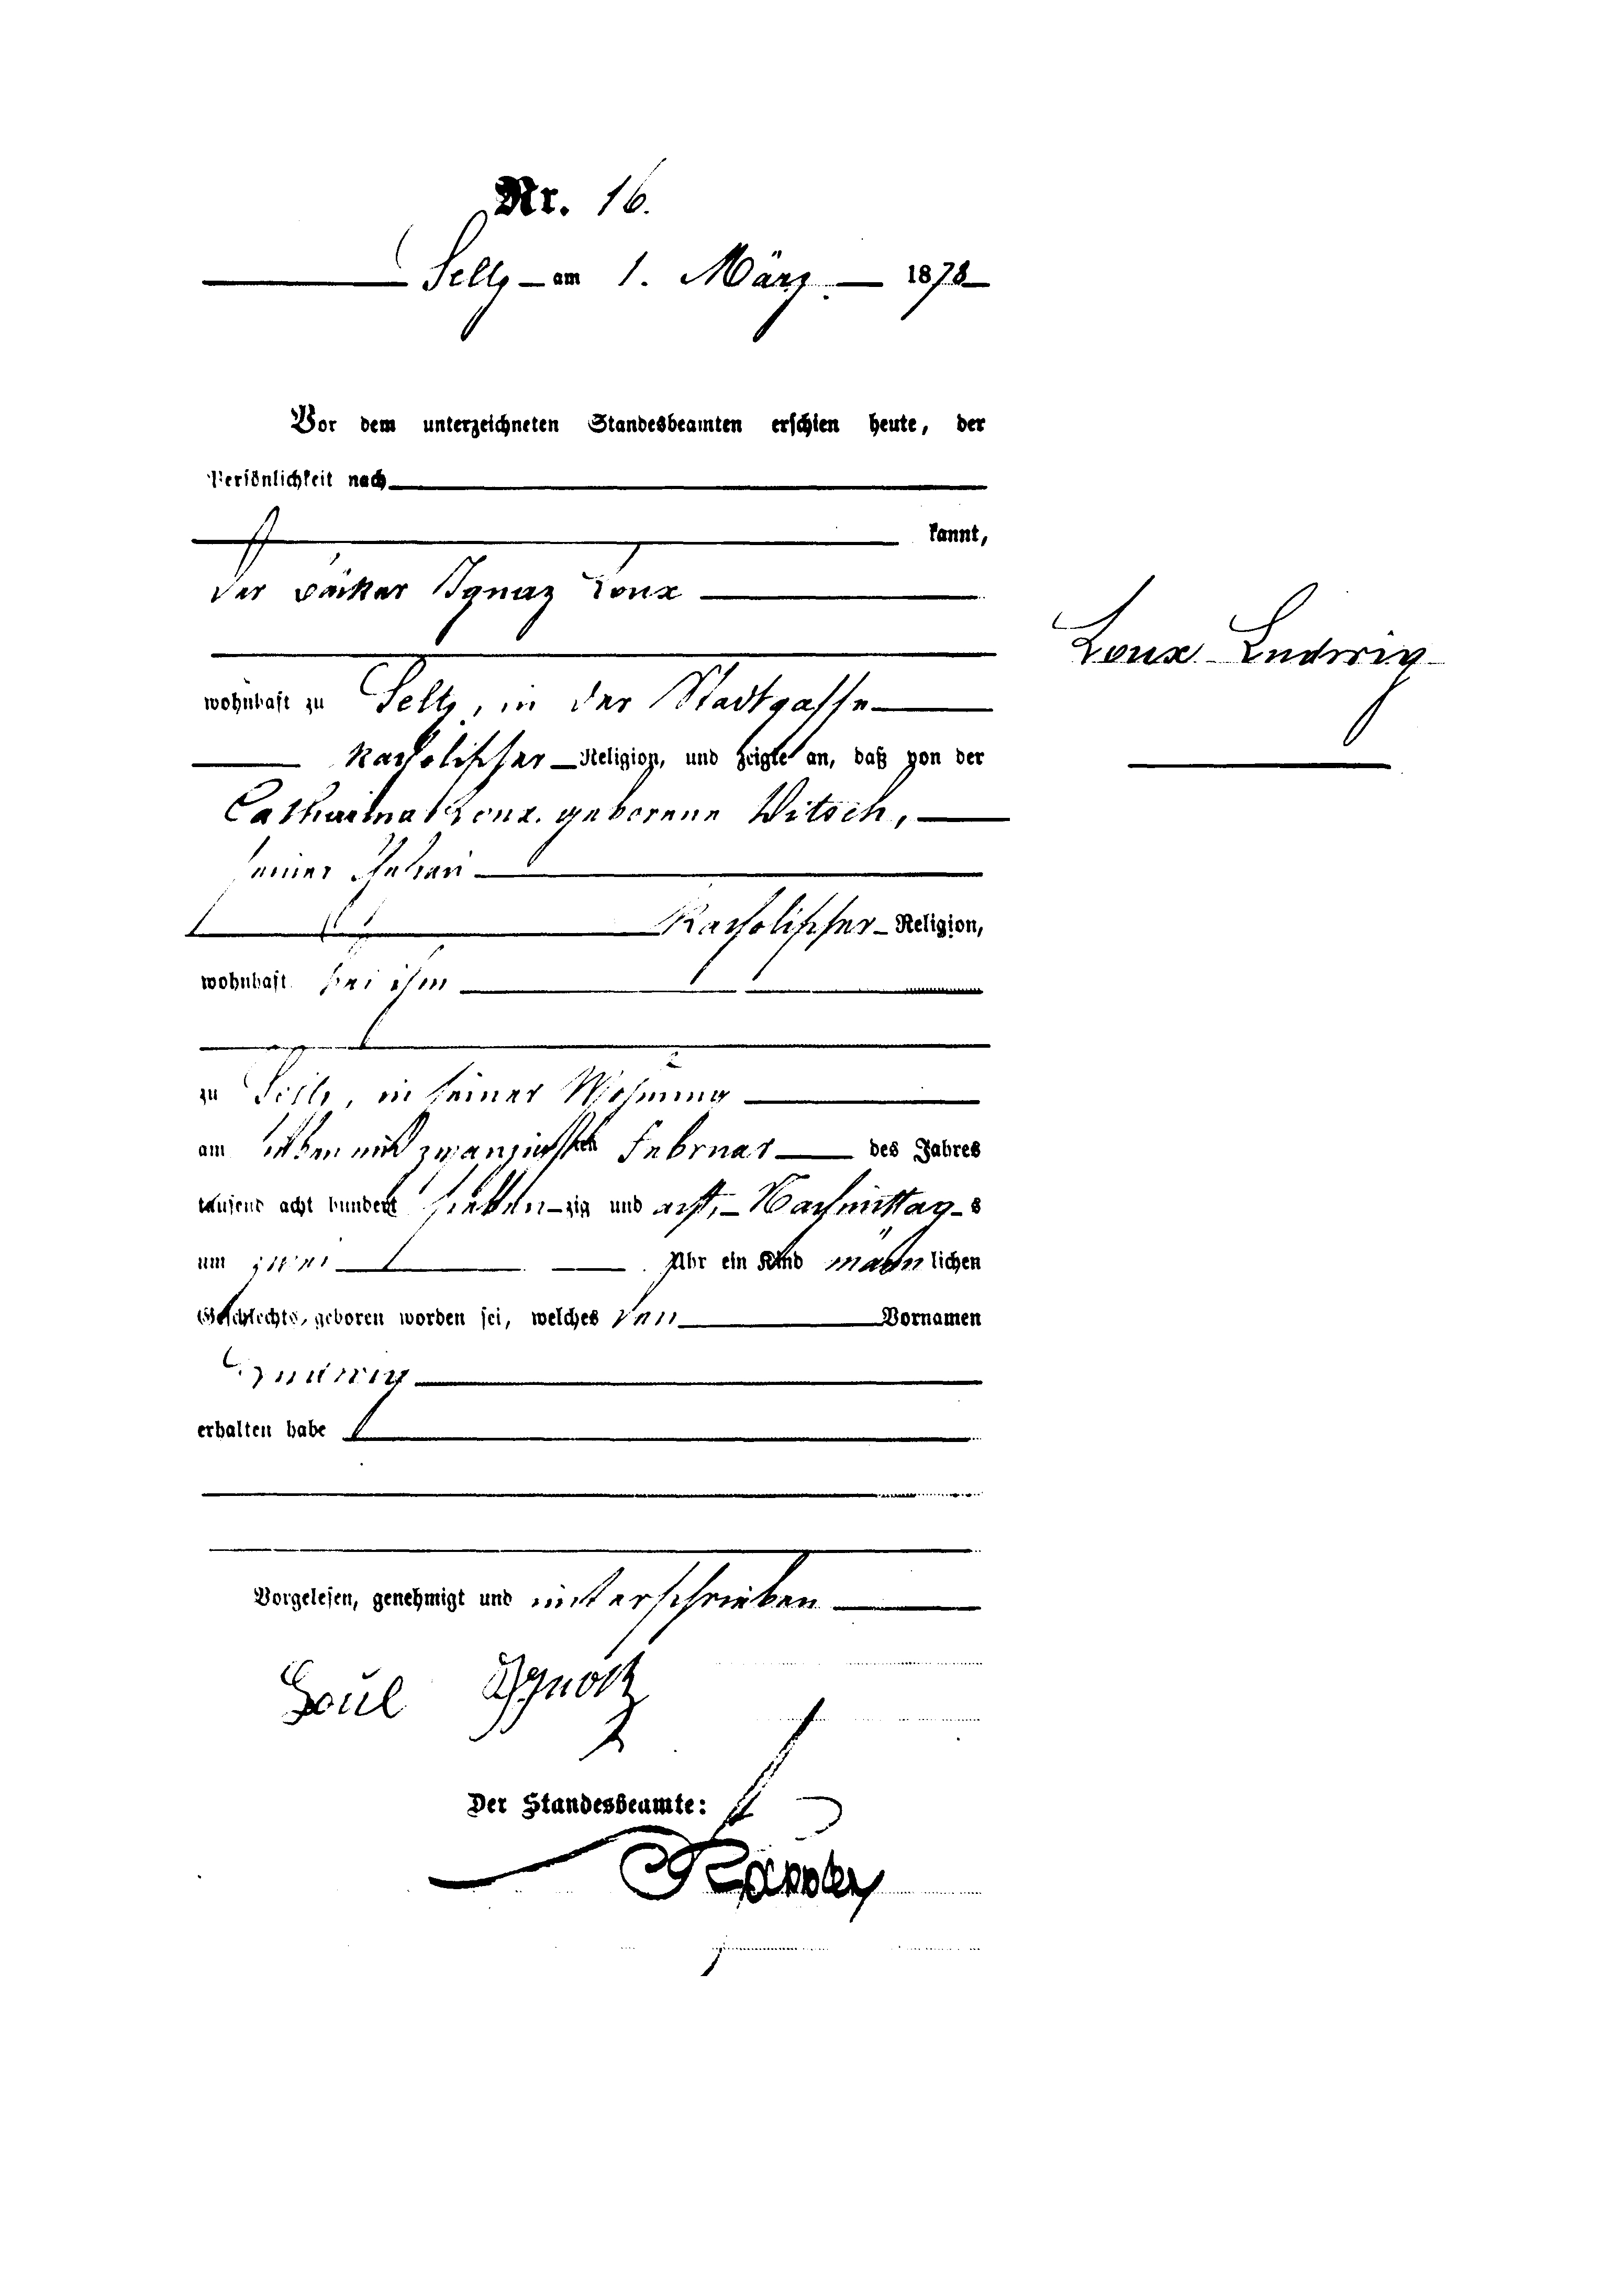 Nr. 16.
Seltz am 1. März 1878
Vor dem unterzeichneten Standesbeamten erschien heute, der
Persönlichkeit nach
kannt,
der Bäcker Ignaz Loux
Loux Ludwig
wohnhaft zu Seltz, in der Stadtgasse
katholischer Religion, und zeigte an, daß von der
Catharina Loux geborene Witsch,
seiner Ehefrau
katholischer Religion,
wohnhaft bei ihm
zu Seltz, in seiner Wohnung
am sieben und zwanzigsten Februar des Jahres
tausend acht hundert siebenzig und acht, Nachmittags
um zwei Uhr ein Kind männlichen
Geschlechts, geboren worden sei, welches den Vornamen
Ludwig
erhalten habe
Vorgelesen, genehmigt und unterschrieben
Der Standesbeamte: